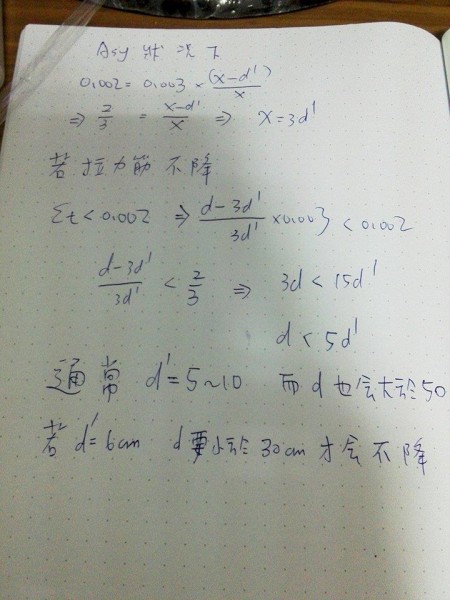 Asy 狀況下
0.002 = 0.003 × (x-d')/x
⇒ 2/3 = x-d'/x ⇒ x = 3d'
若拉力筋不降
Σt < 0.002 ⇒ d-3d'/3d' × 0.003 < 0.002
d-3d'/3d' < 2/3 ⇒ 3d < 15d'
d < 5d'
通常 d' = 5~10 而 d 也会大於 50
若 d' = 6cm d 要小於 30cm 才会不降